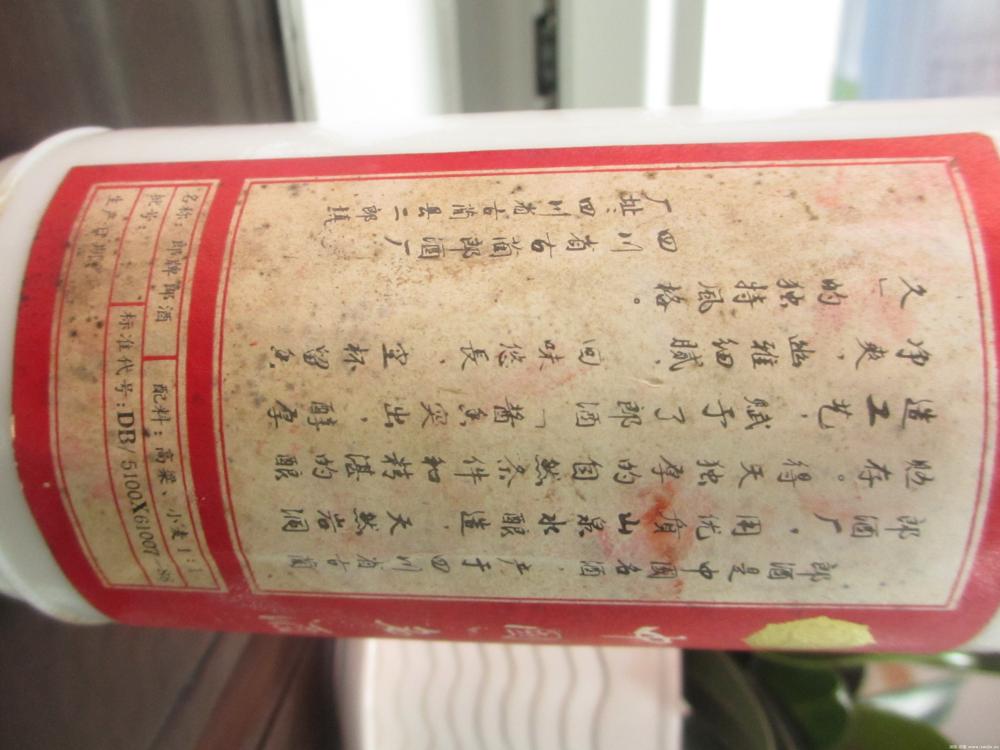 郎酒是中國名酒，产于四川省古藺
郎酒厂，用优良山泉水酿造，天然岩洞
贮存。得天独厚的自然条件和精湛的酿
造工艺，赋予了郎酒「酱香突出，醇厚
净爽，幽雅细腻，回味悠長，空杯留香
久」的独特風格。
四川省古藺郎酒厂
厂址：四川省古藺县二郎镇
名称：郎牌郎酒 配料：高粱、小麦 1:1
批号：
生产日期： 标准代号：DB/5100X61007-88
中國名酒